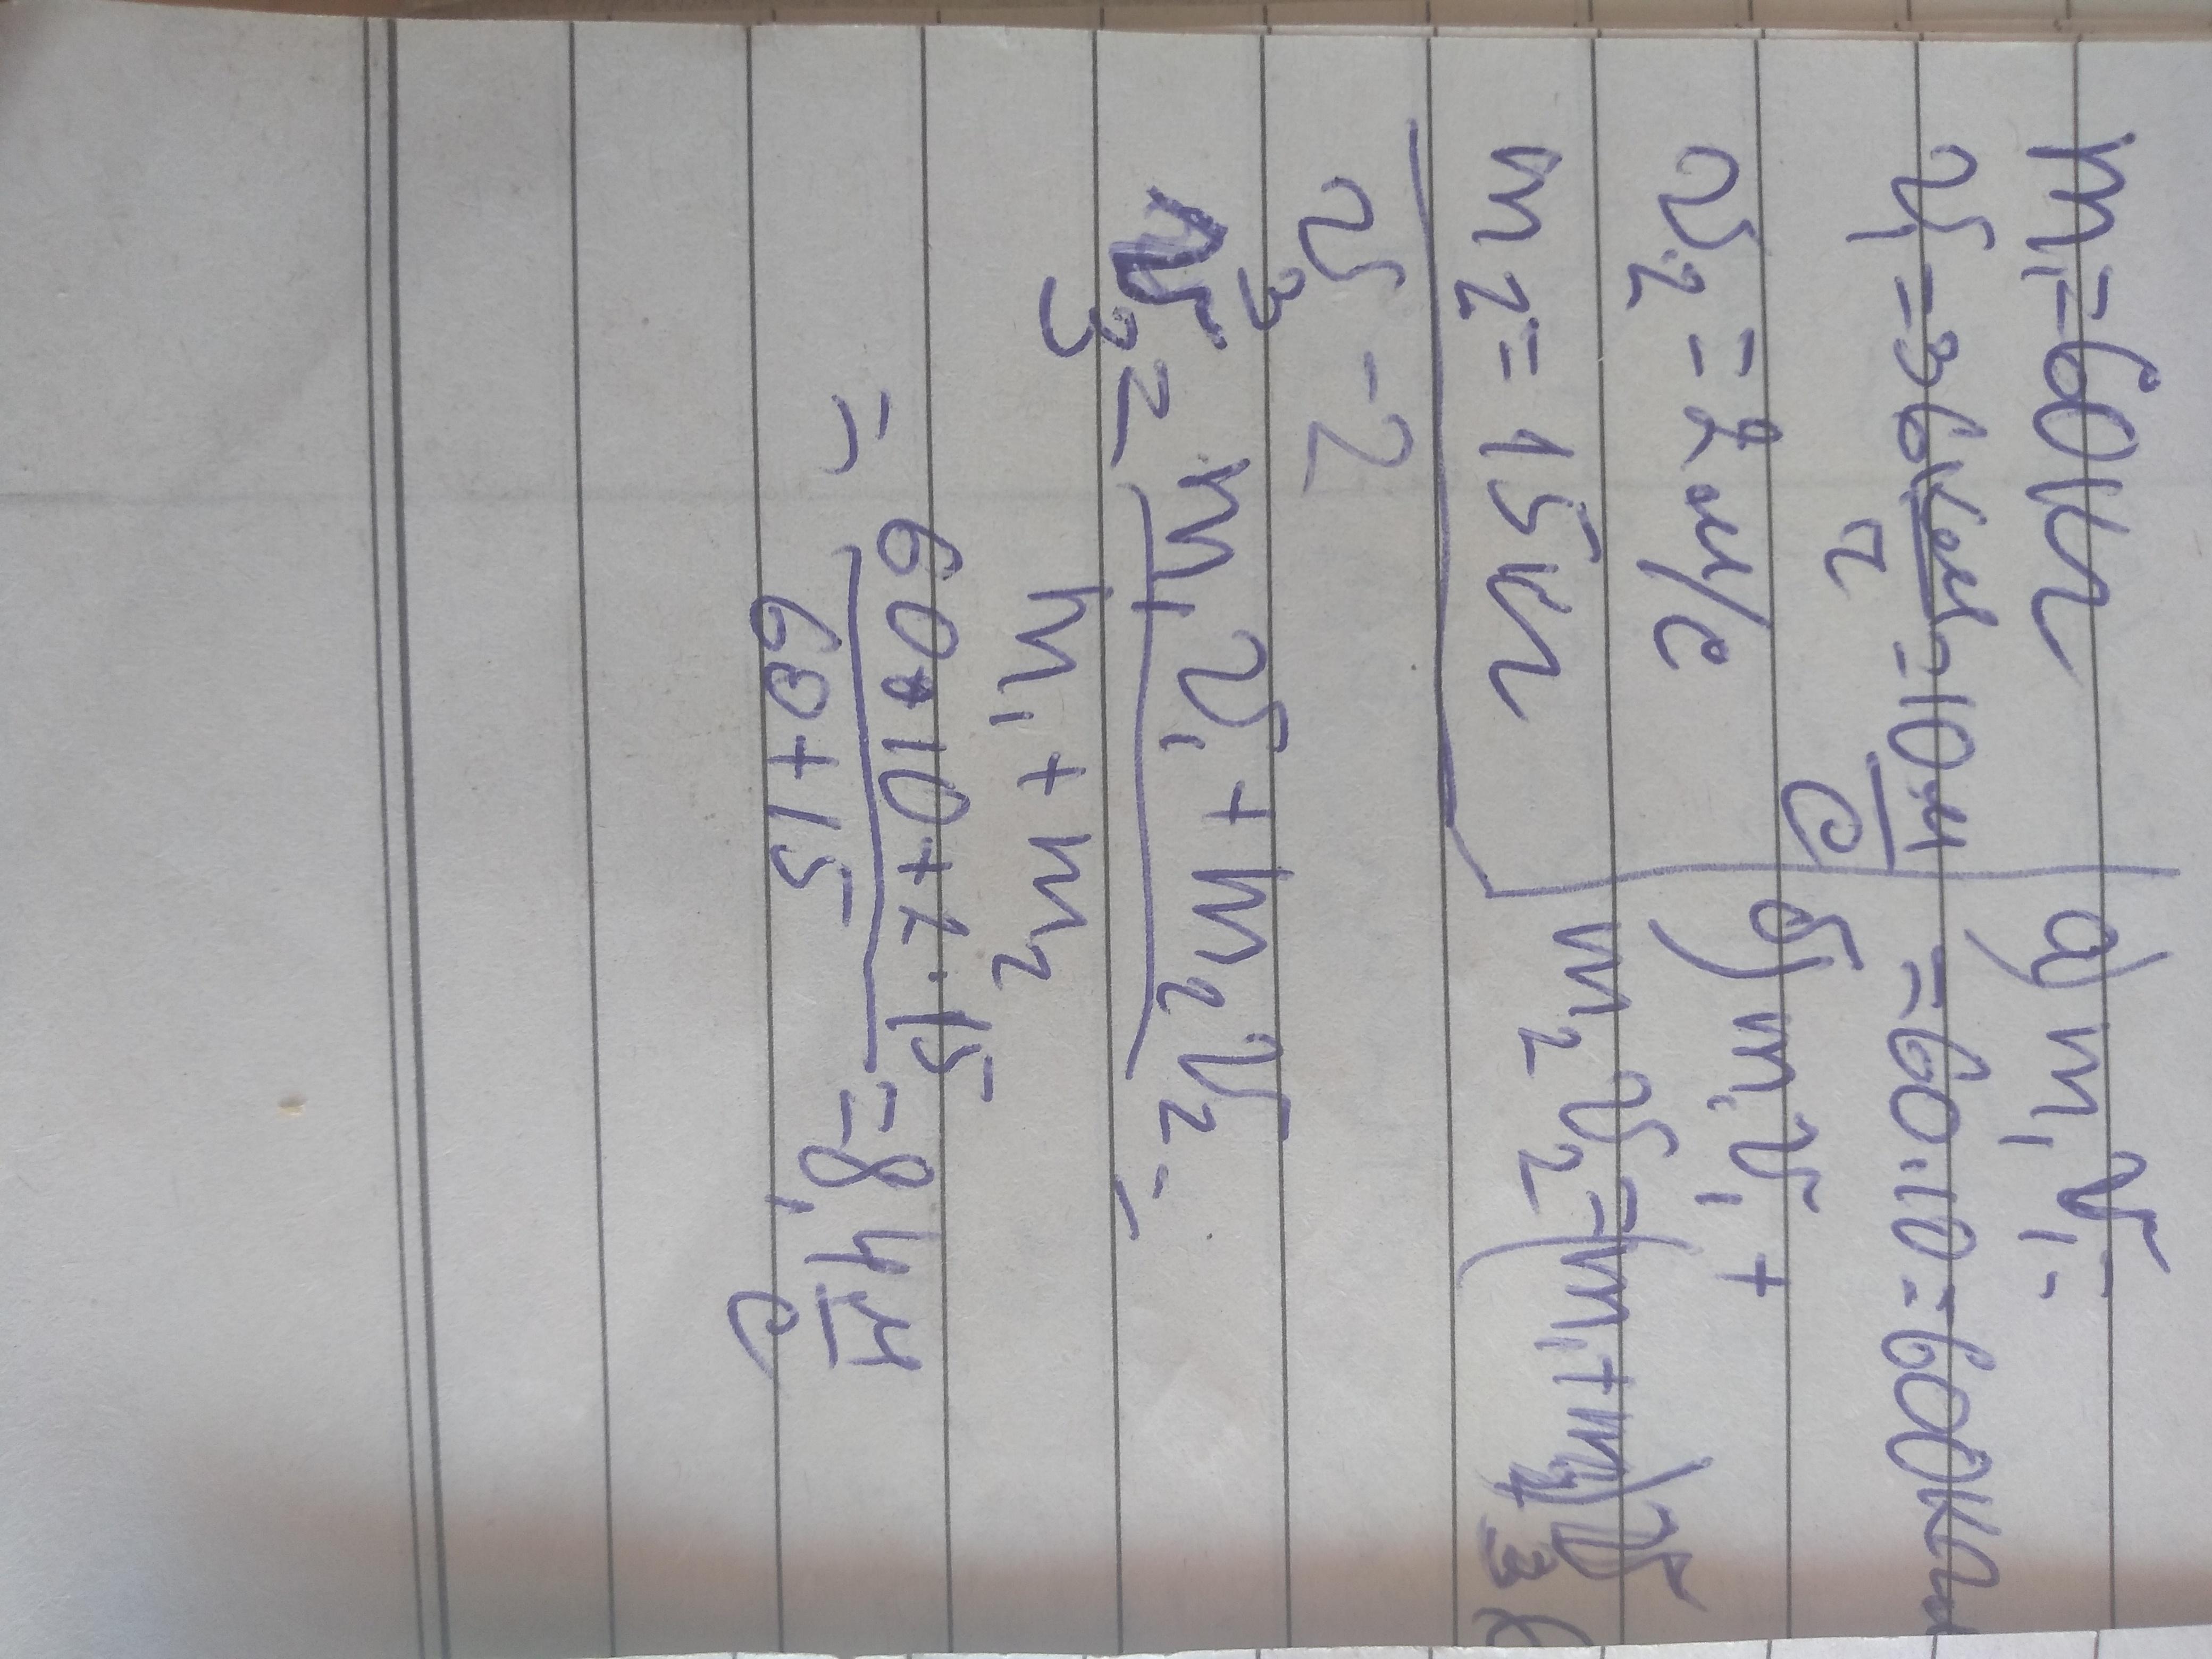 m₁=60кг
υ₁=36 км/ч=10 м/с
υ₂=2 м/с
m₂=15кг
υ₃-?
а) m₁υ₁=
=60·10=600кгм
б) m₁υ₁+
m₂υ₂=(m₁+m₂)υ₃
υ₃=(m₁υ₁+m₂υ₂)/(m₁+m₂)=
=(60·10+2·15)/(60+15)=8,4 м/с